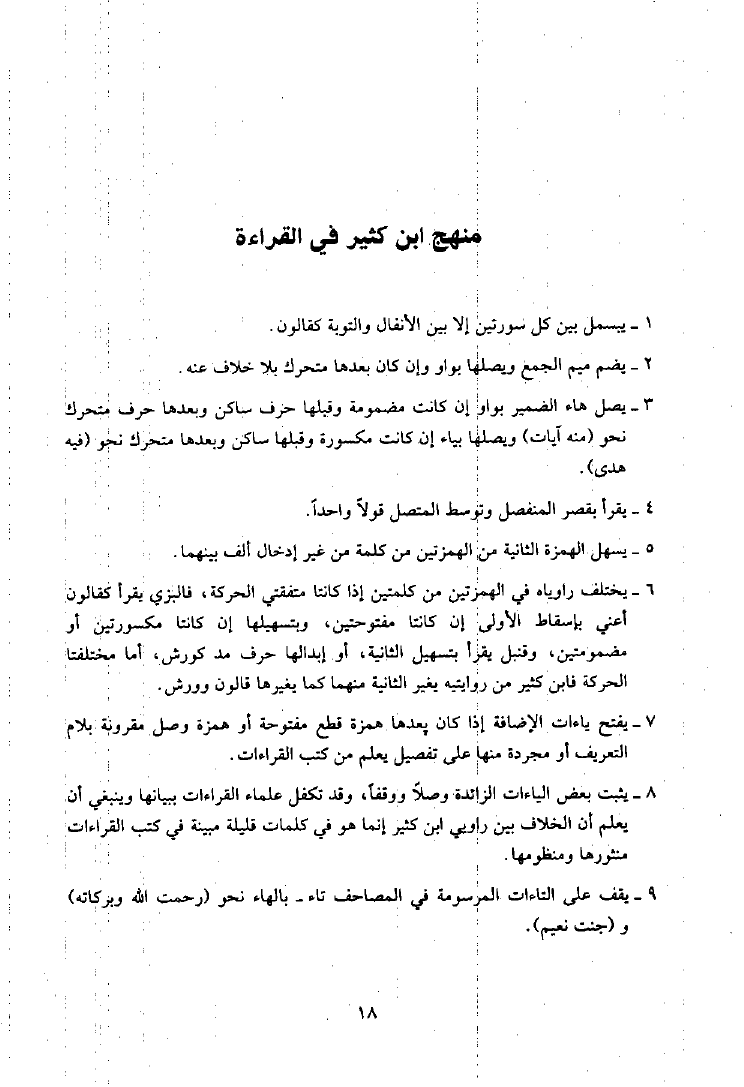 منهج ابن كثير في القراءة
١ ـ يبسمل بين كل سورتين إلا بين الأنفال والتوبة كقالون.
٢ ـ يضم ميم الجمع ويصلها بواو وإن كان بعدها متحرك بلا خلاف عنه.
٣ ـ يصل هاء الضمير بواو إن كانت مضمومة وقبلها حرف ساكن وبعدها حرف متحرك
نحو (منه آيات) ويصلها بياء إن كانت مكسورة وقبلها ساكن وبعدها متحرك نحو (فيه
هدى).
٤ ـ يقرأ بقصر المنفصل وتوسط المتصل قولاً واحداً.
٥ ـ يسهل الهمزة الثانية من الهمزتين من كلمة من غير إدخال ألف بينهما.
٦ ـ يختلف راوياه في الهمزتين من كلمتين إذا كانتا متفقتي الحركة، فالبزي يقرأ كقالون
أعني بإسقاط الأولى إن كانتا مفتوحتين، وبتسهيلها إن كانتا مكسورتين أو
مضمومتين، وقنبل يقرأ بتسهيل الثانية، أو إبدالها حرف مد كورش، أما مختلفتا
الحركة فابن كثير من روايتيه يغير الثانية منهما كما يغيرها قالون وورش.
٧ ـ يفتح ياءات الإضافة إذا كان بعدها همزة قطع مفتوحة أو همزة وصل مقرونة بلام
التعريف أو مجردة منها على تفصيل يعلم من كتب القراءات.
٨ ـ يثبت بعض الياءات الزائدة وصلاً ووقفاً، وقد تكفل علماء القراءات ببيانها وينبغي أن
يعلم أن الخلاف بين راويي ابن كثير إنما هو في كلمات قليلة مبينة في كتب القراءات
منثورها ومنظومها.
٩ ـ يقف على التاءات المرسومة في المصاحف تاء ـ بالهاء نحو (رحمت الله وبركاته)
و (جنت نعيم).
١٨